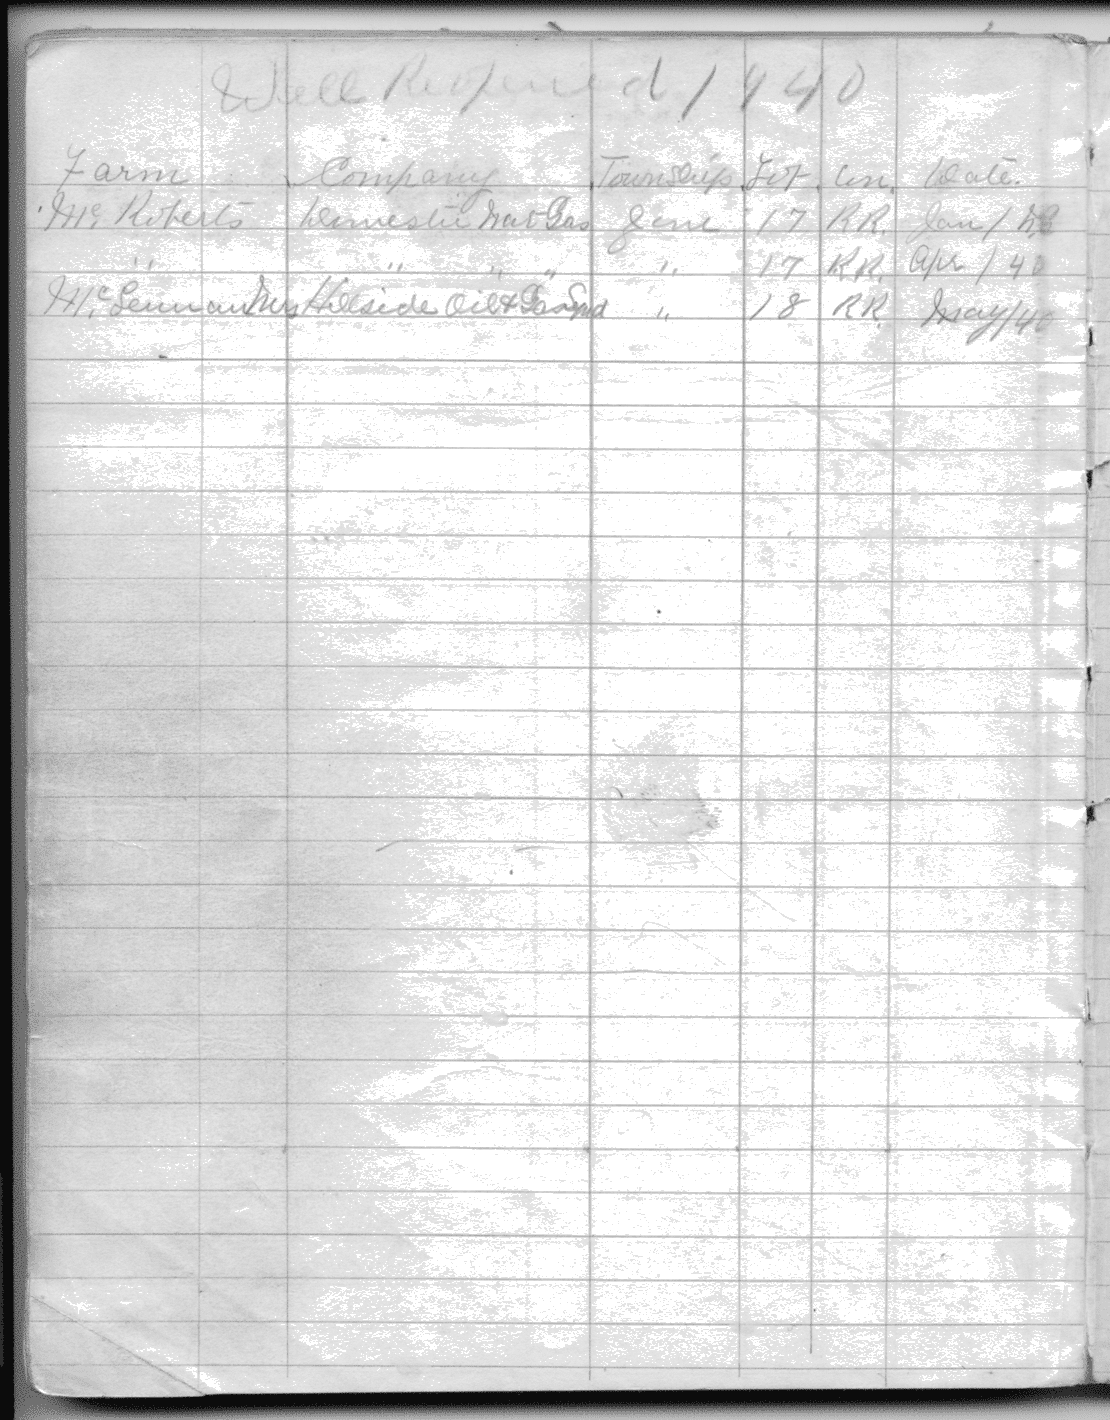 Well Repaired 1940
Farm Company Township Lot Con. Date.
Mc Roberts Domestic Nat Gas 17 R.R. Jan / 40
" " " " " 17 R.R. Apr / 40
Mrs Hillside Oil & Gas Synd " 18 R.R. May / 40